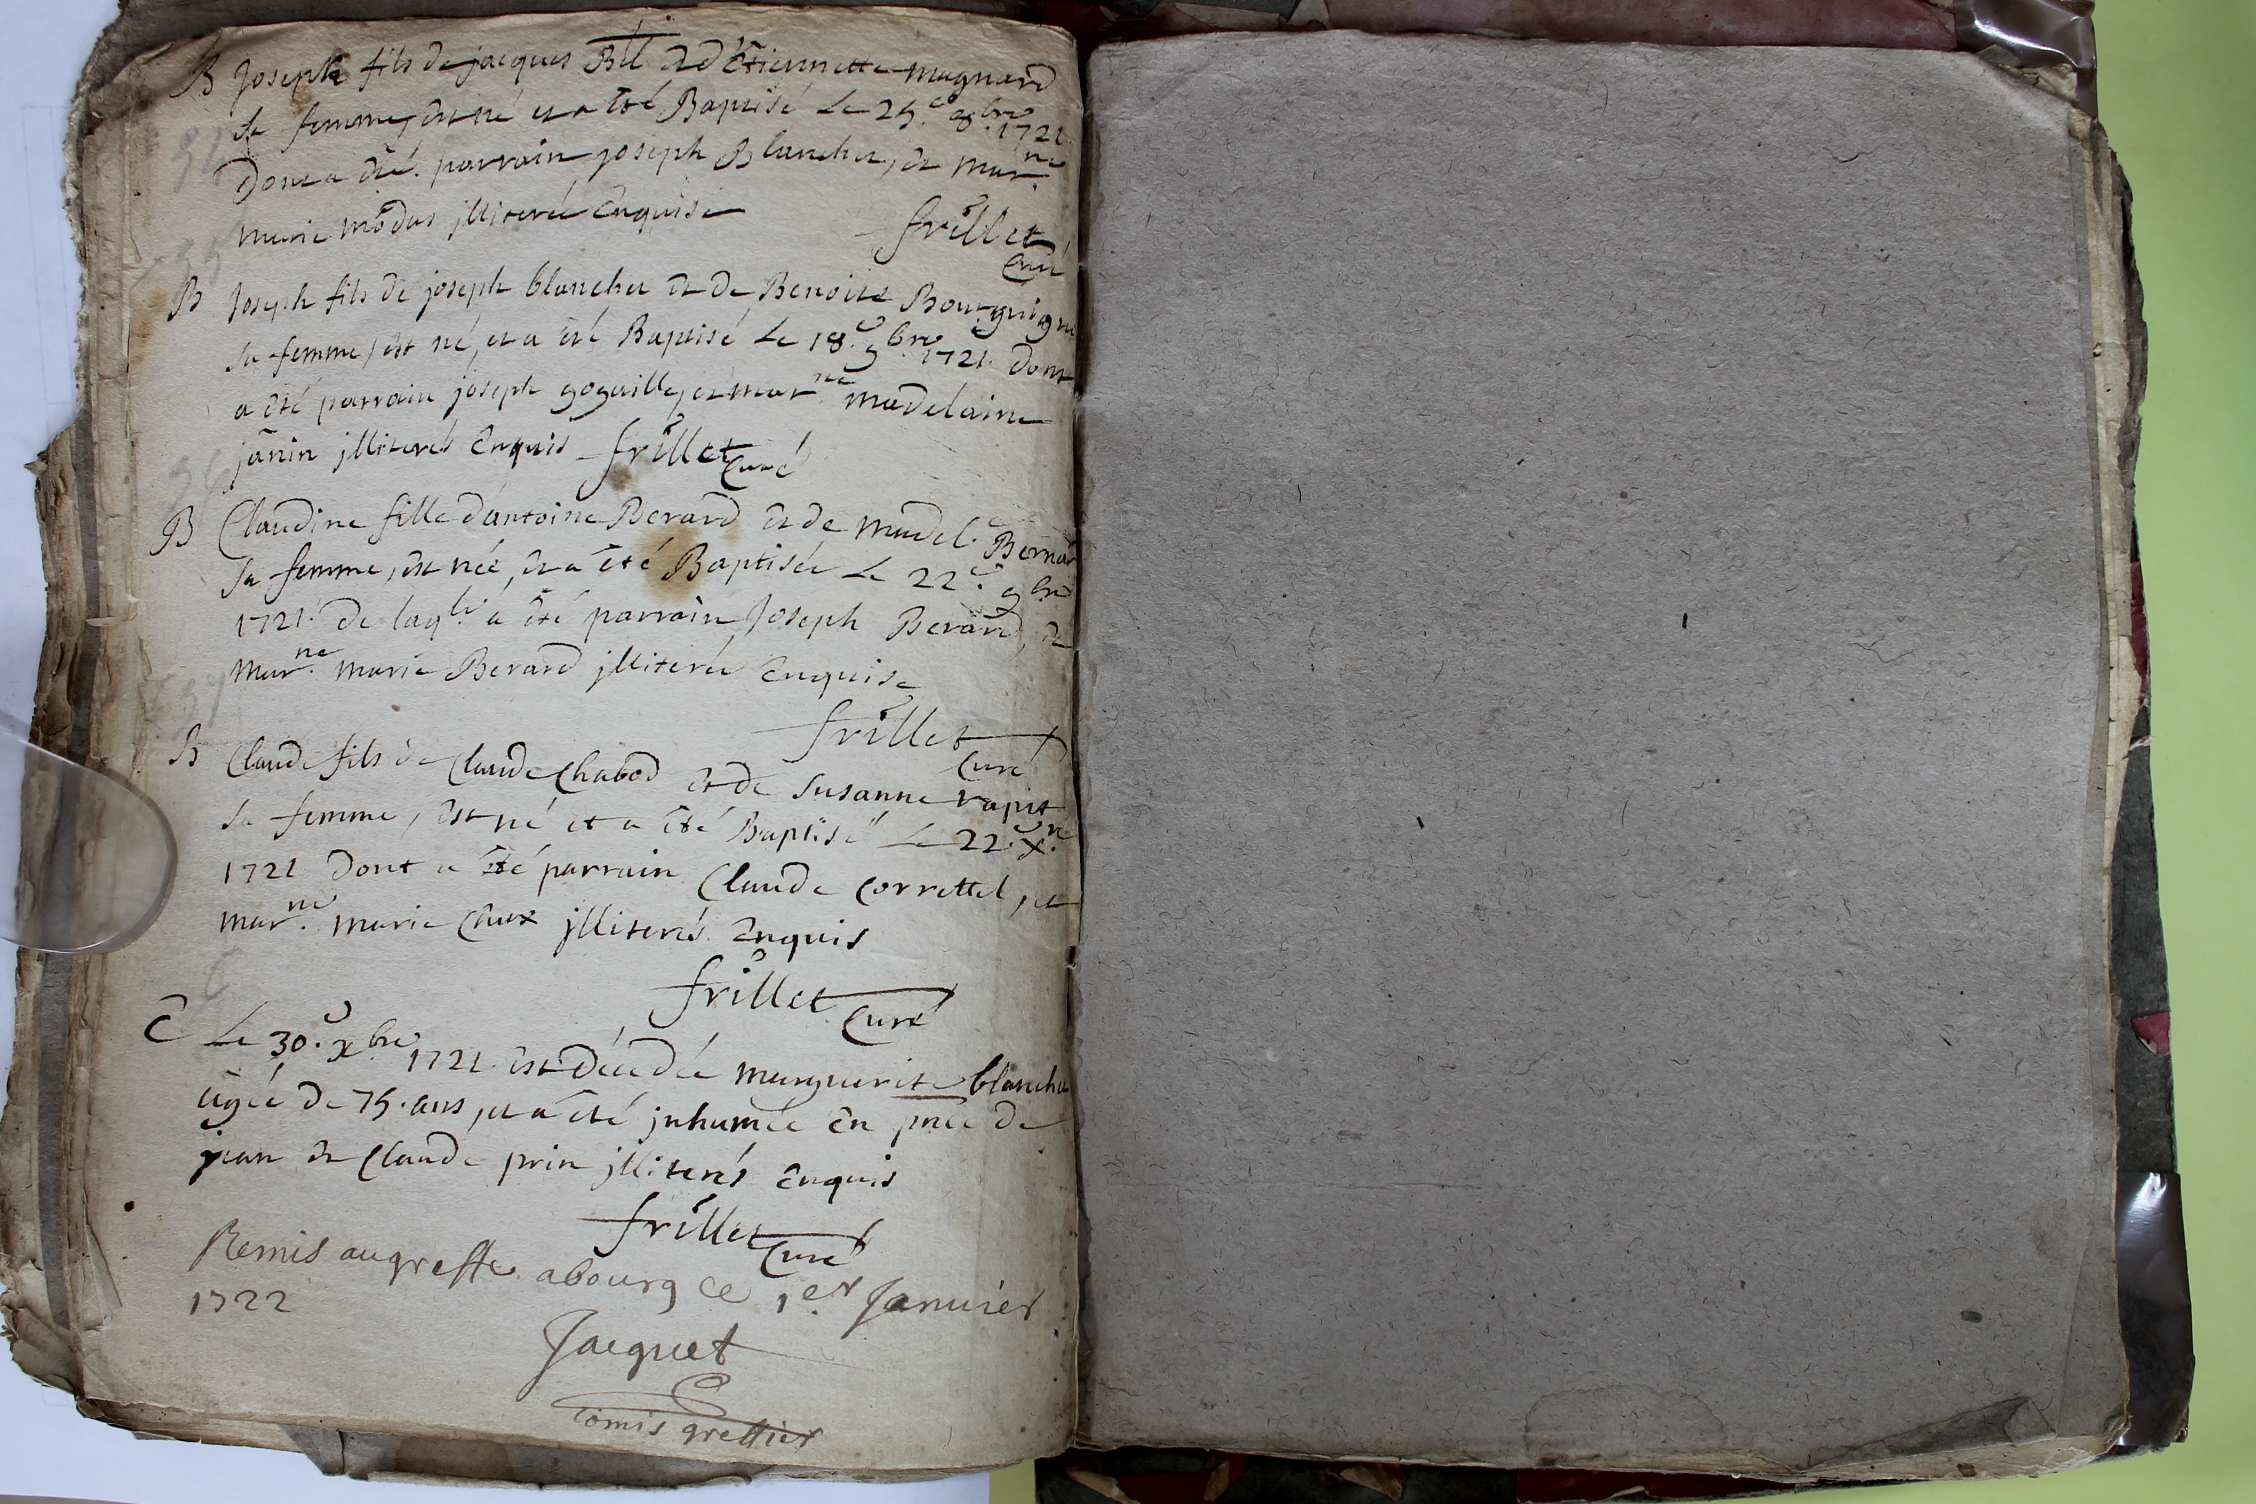 B Joseph fils de jacques Bll et d'Etiennette mugnard
sa femme, est né et a été Baptisé Le 25.e 8.bre 1721.
Dont a été parrain joseph Blanchet, et mar.ne
marie modas jlliterée Enquise
frillet
Curé
B Joseph fils de joseph blanchet et de Benoite Bourguign
sa femme, est né, et a été Baptisé Le 18.e 9.bre 1721. Dont
a été parrain joseph gogaille, et mar.ne madelaine
janin jlliterés Enquis frillet Curé
B Claudine fille d'antoine Berard et de madel. Bernar
sa femme, est née, et a été Baptisée Le 22.e 9bre
1721. De laq.le a été parrain Joseph Berard, et
mar.ne marie Berard jlliterée Enquise
frillet
Curé
B Claude fils de Claude Chabod et de Susanne rapet
sa femme, est né et a été Baptisé Le 22.e X.re
1721 Dont a été parrain Claude Correttel, et
mar.ne marie Chux jlliterés Enquis
frillet
Curé
C Le 30.e Xbre 1721 est Décédée marguerite blanchet
agée de 75. ans, et a été jnhumée En pnce De
jean et Claude prin jlliterés Enquis
frillet
Curé
Remis au greffe a bourg ce 1.er Janvier
1722
Jacquet
Comis greffier